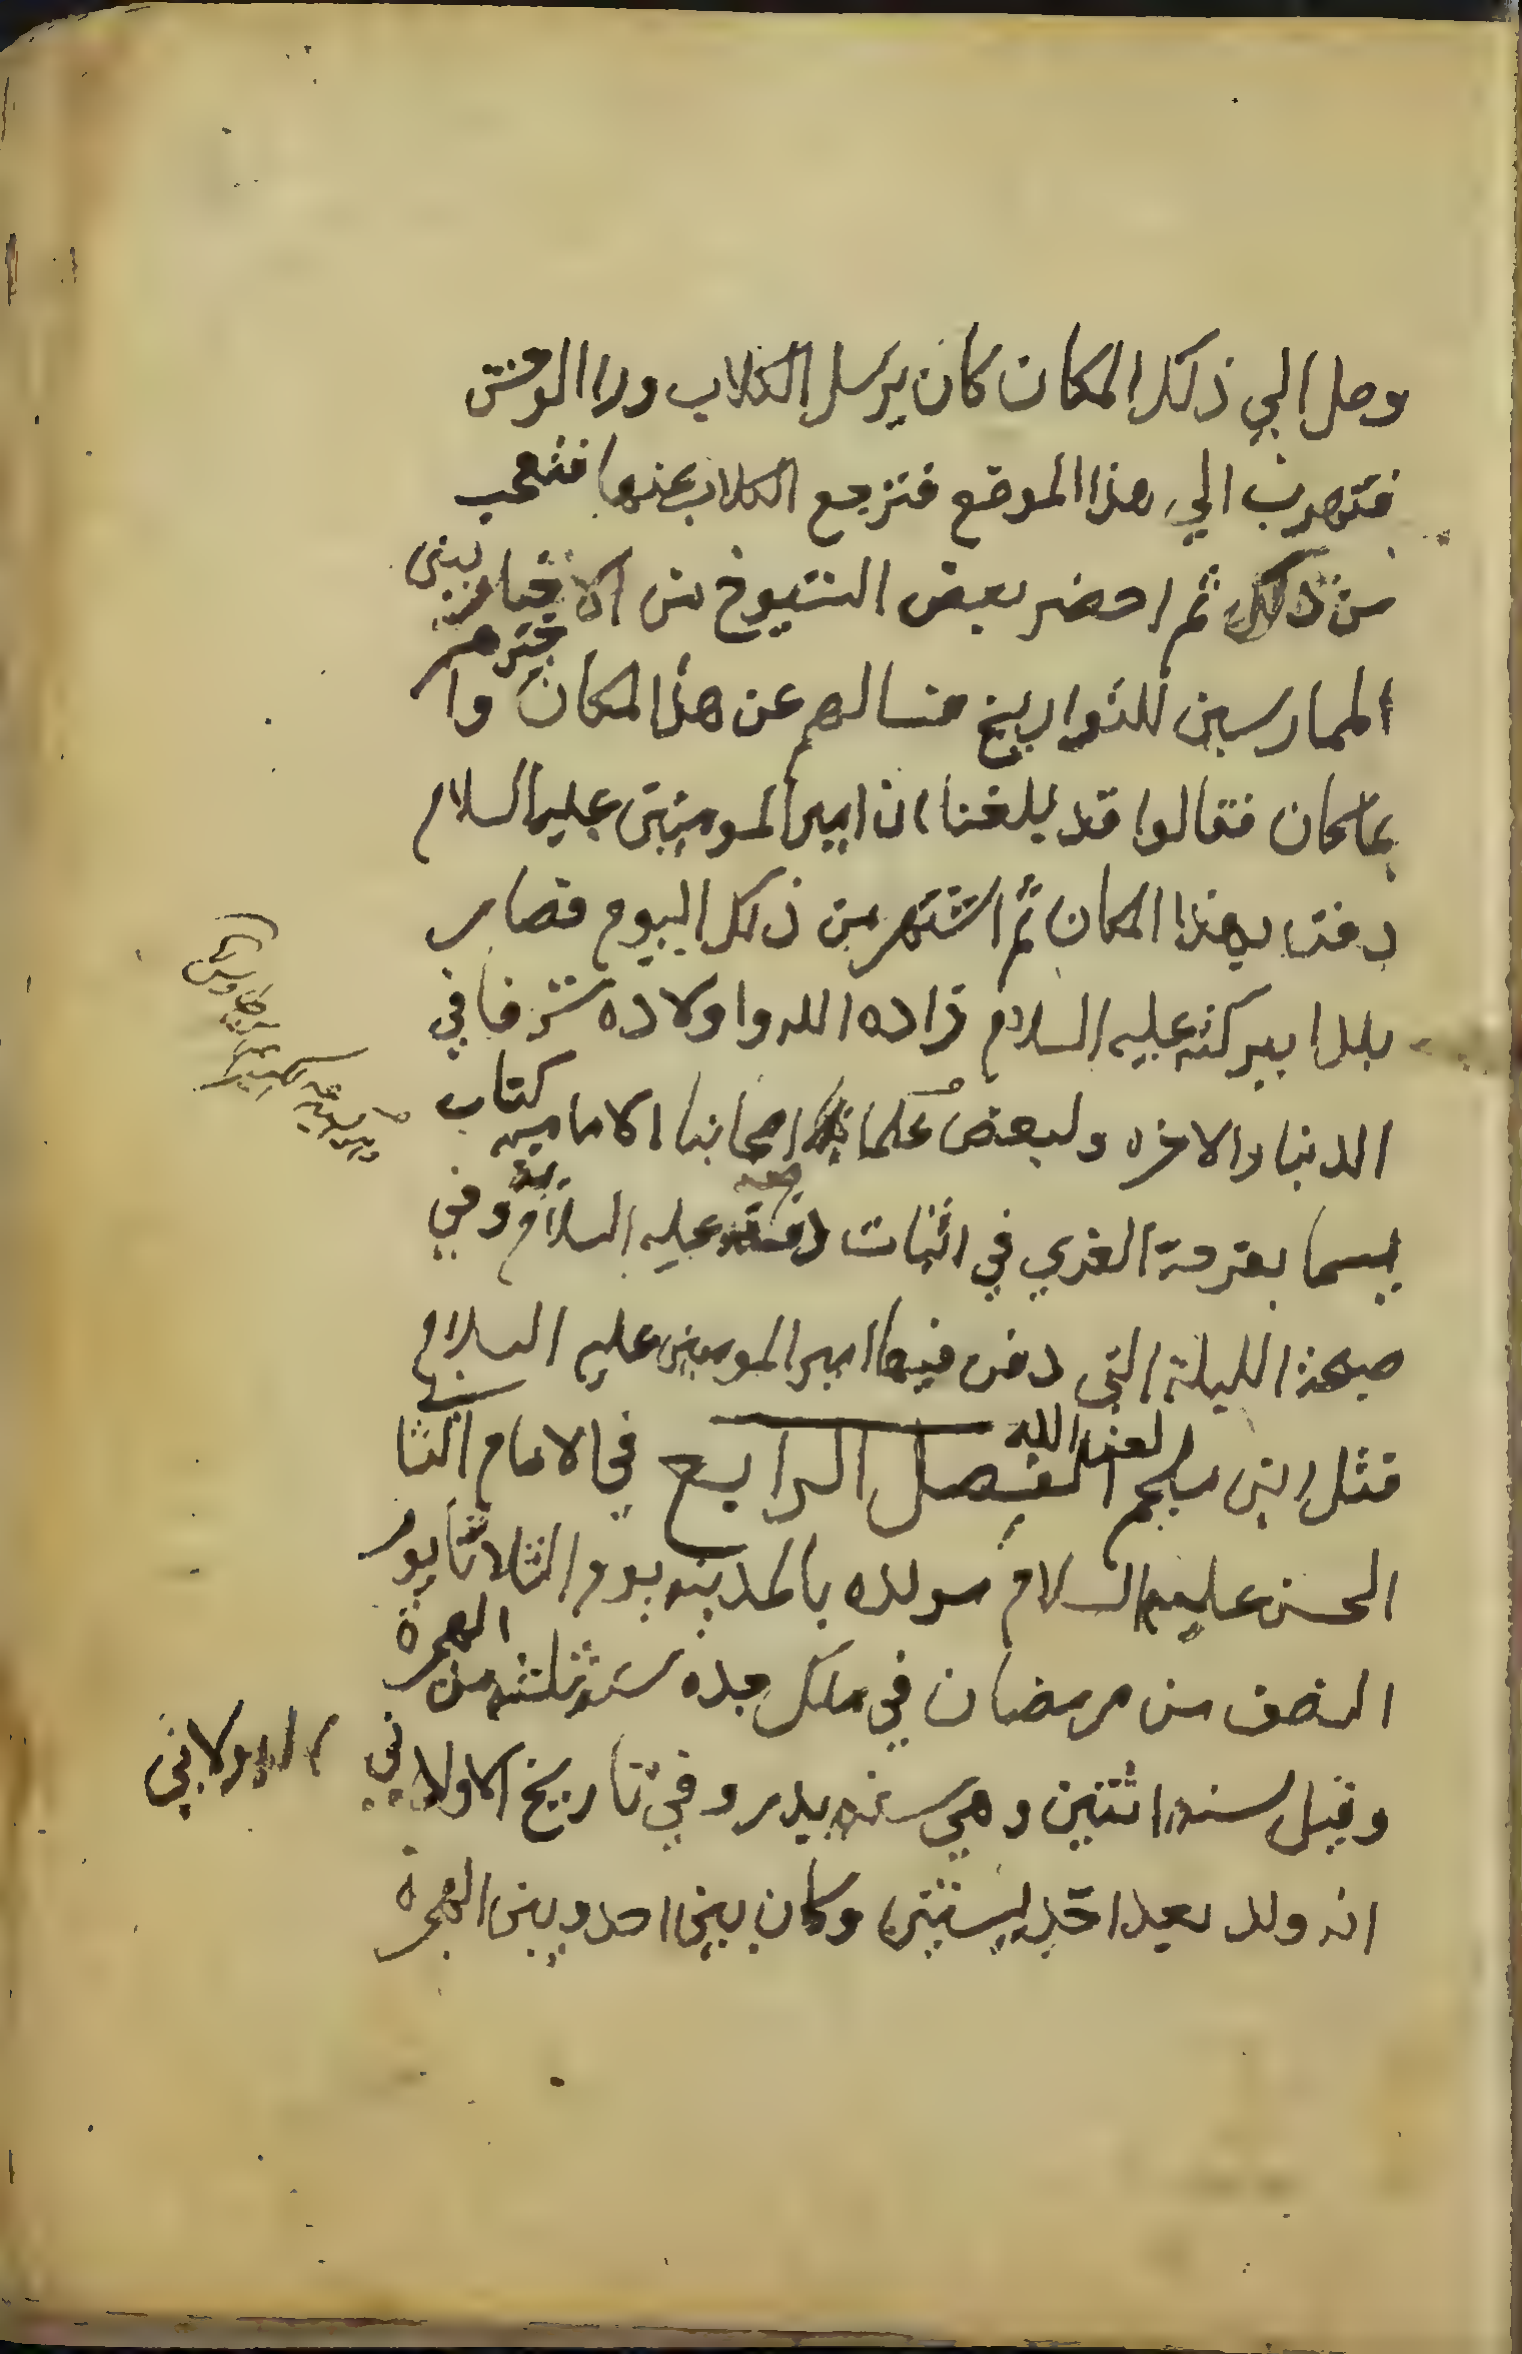 وصل الي ذلك المكان كان يرسل الكلاب ورا الوحش
فتهرب الي هذا الموقع فترجع الكلاب عنها فتعجب
من ذلك ثم احضر بعض الشيوخ من الاخباريين
الممارسين للتواريخ فسالهم عن هذا المكان واخبرهم
بما كان فقالوا قد بلغنا ان امير المومنين عليه السلام
دفن بهذا المكان ثم اشتهر من ذلك اليوم فصار
بلدا ببركته عليه السلام زاده الله واولاده شرفا في
الدنيا والاخره ولبعض علما اصحابنا الاماميه كتاب
يسما بفرحة الغري في اثبات دفنه عليه السلام وفي
صبحة الليلة التي دفن فيها امير المومنين عليه السلام
قتل ابن ملجم لعنه الله الفصل الرابع في الامام الثاني
الحسن عليه السلام مولده بالمدينه يوم الثلاثا يوم
النصف من رمضان في ملك جده سنة ثلثه من الهجرة
وقيل سنه اثنتين وهي سنه بدر وفي تاريخ الاولاني الدولابي
انه ولد بعد احد بسنتين وكان بين احد وبين الهجرة